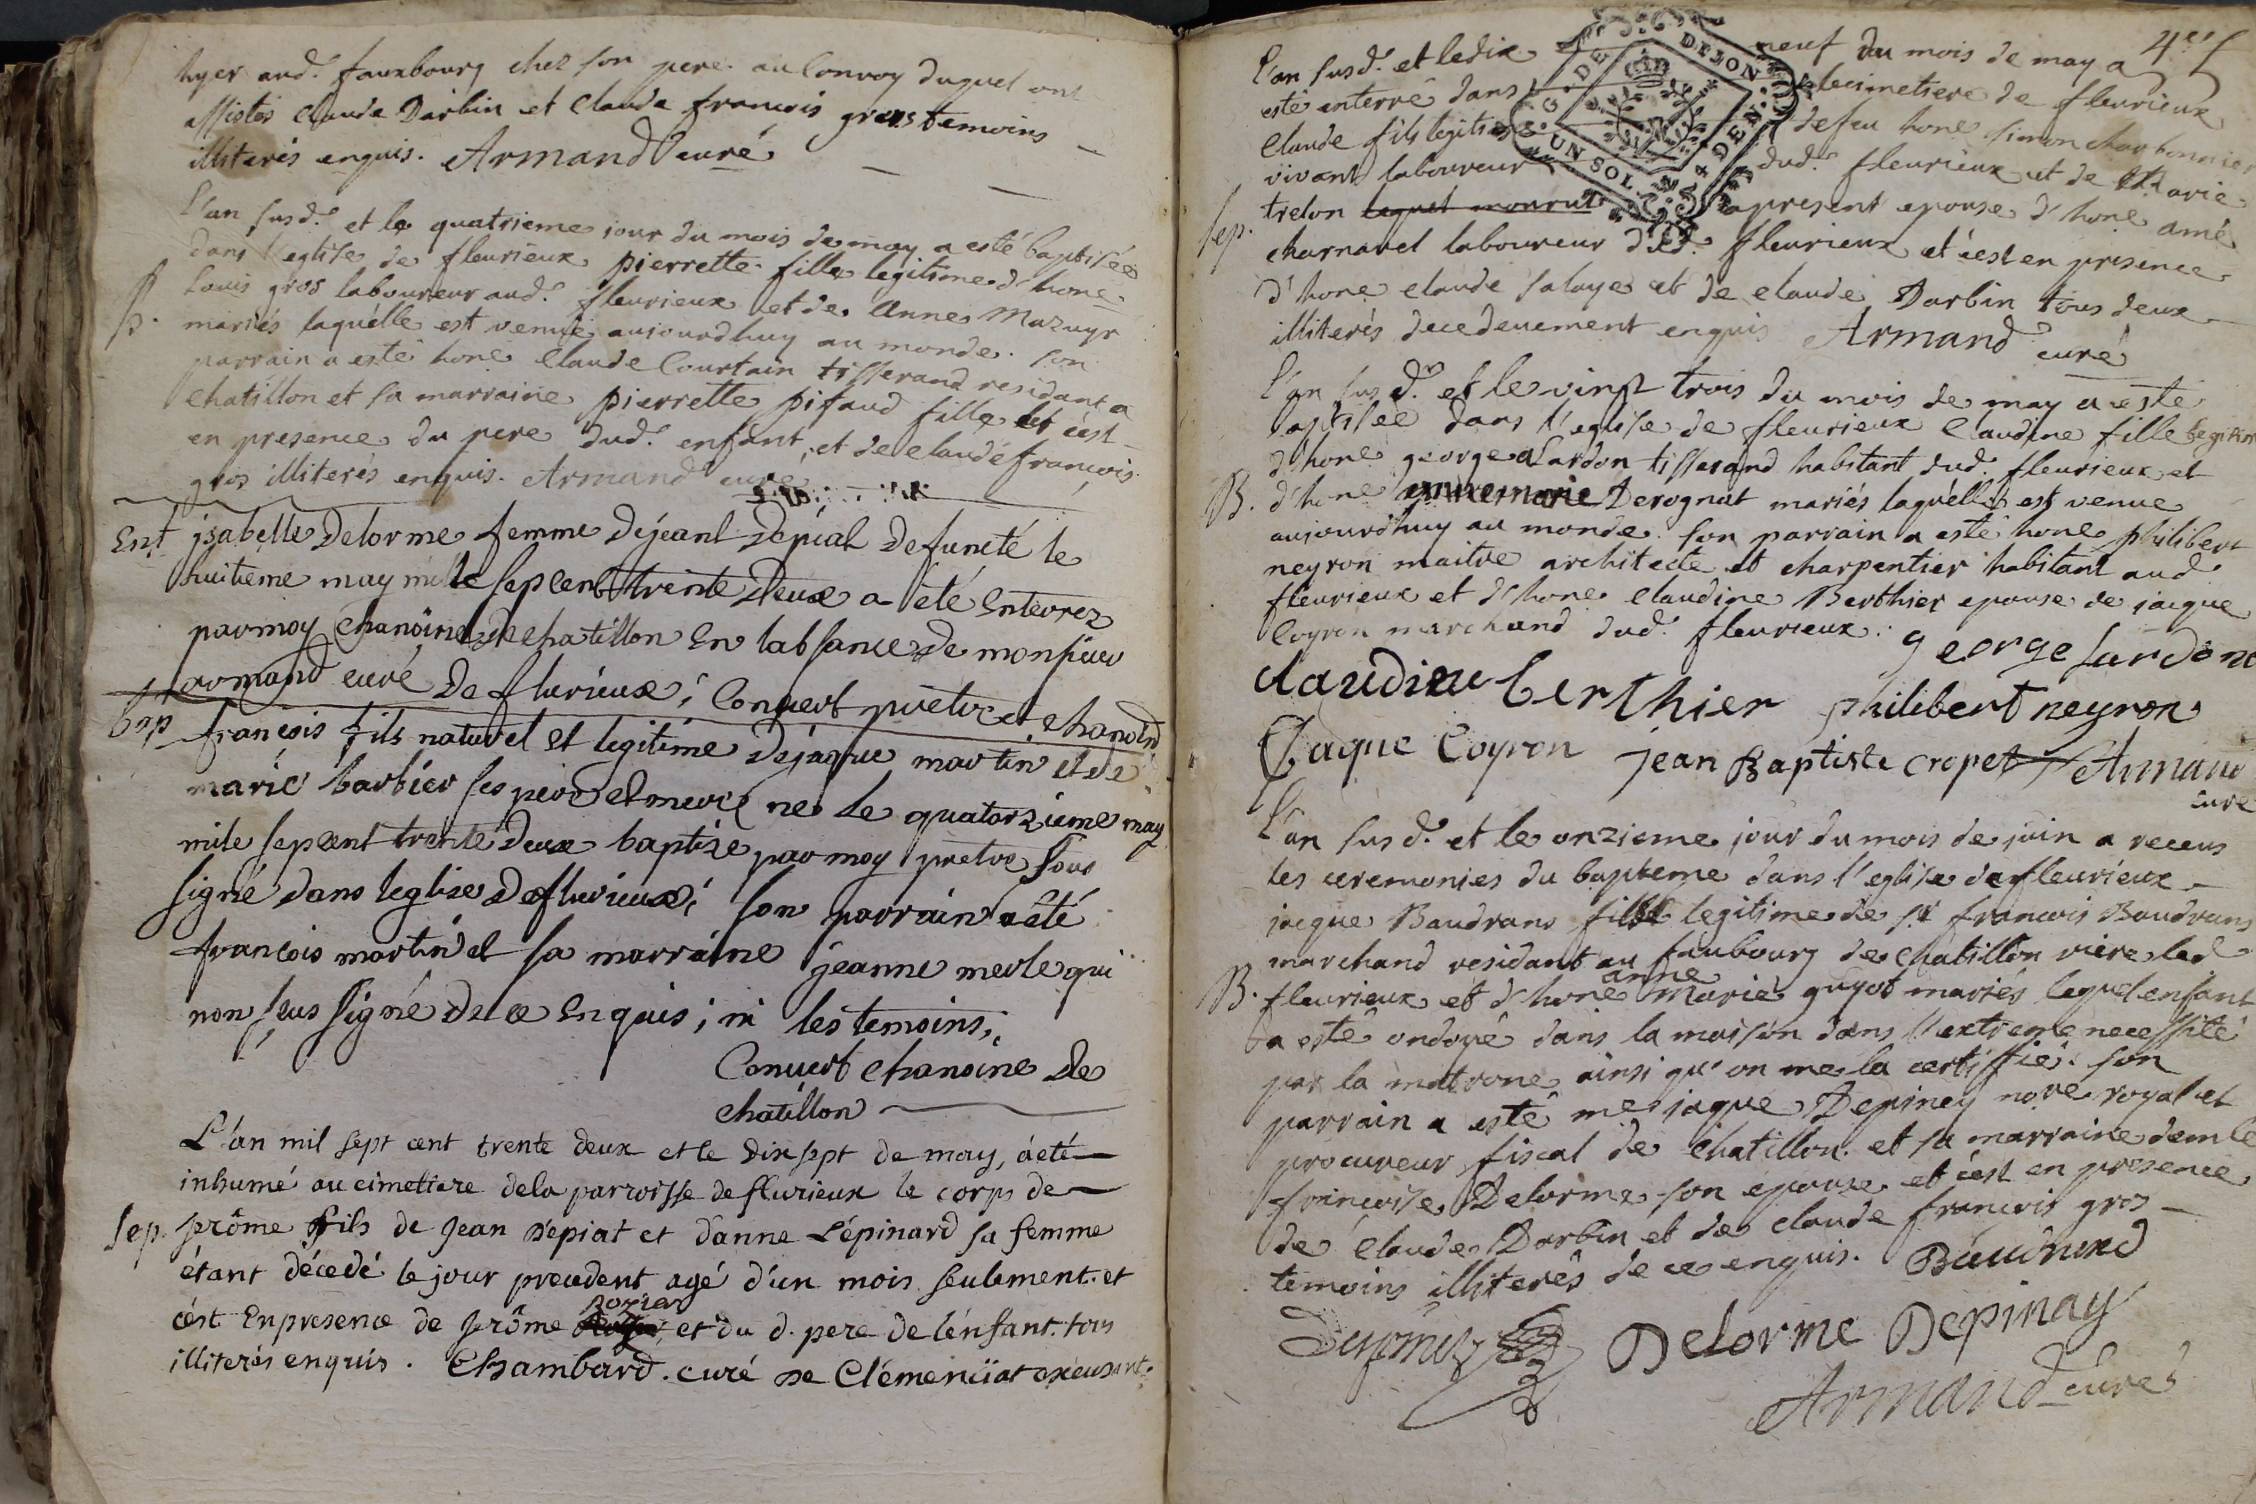 hyer aud.^t fauxbourg chez son pere. au Convoy duquel ont
assistés Claude Darbin et Claude francois gros temoins
illiterés enquis. Armand curé
L'an susd.^t et le quatrieme jour du mois de may a esté baptisée
dans l'eglise de fleurieux pierrette fille legitime d'hone
Louis gros laboureur aud.^t fleurieux et de Anne Mazuyr
B.
mariés laquelle est venue aujourdhuy au monde. son
parrain a esté hone Claude Courtain tisserand residant a
Chatillon et sa marraine pierrette pifaud fille et c'est
en presence du pere dud.^t enfant, et de claude francois
gros illiterés enquis. Armand curé
Ent jsabelle Delorme femme de jeant depiat defuncté le
huitieme may mille sepcent trente deux a été enterrez
par moy chanoine de chatillon en labsance de monsieur
armand curé de flurieux; Convert pretre et chanoin
bap francois fils naturel et legitime de jaque martin et de
marie barbier ses pere et mere ne le quatorzieme may
mile sepcent trente deux baptize par moy pretre sous
signé dans leglise de flurieux; son parrain a été
francois martin et sa marraine jeanne merle qui
non seus signé de ce enquis; ni les temoins;
Convert chanoine de
chatillon
L'an mil sept cent trente deux et le dix sept de may, a été
inhumé au cimetiere de la parroisse de flurieux le corps de
Sep. jerôme fils de Jean depiat et d'anne Lépinard sa femme
étant décedé le jour precedent agé d'un mois seulement. et
rozier
c'est en presence de jerôme et du d. pere de l'enfant. tous
illiterés enquis. Chambard. curé de Clémenciat excusant.
4^e 5
L'an susd.^t et le dix neuf du mois de may a
esté enterré dans le cimetiere de fleurieux
Claude fils legitime de feu hone simon charbonnier
vivant laboureur dud.^t fleurieux et de Marie
Sep.
trelon lequel mourut apresent epouse d'hone amé
charnavel laboureur dud.^t fleurieux et c'est en presence
d'hone claude salaye et de claude Darbin tous deux
illiterés de ce deuement enquis Armand curé
L'an susd.^t et le vingt trois du mois de may a esté
baptisée dans l'eglise de fleurieux Claudine fille legitim
d'hone george Lardon tisserand habitant dud.^t fleurieux et
B. d'hone annemarie Derognat mariés laquelle est venue
aujourdhuy au monde. son parrain a esté hone philibert
neyron maitre architecte et charpentier habitant aud.^t
fleurieux et d'hone Claudine Berthier epouse de jaque
Coyron marchand dud.^t fleurieux. george lardone
claudine berthier philibert neyron
Jaque Coyron jean Baptiste cropet Armand
curé
L'an susd.^t et le onzieme jour du mois de juin a receus
les ceremonies du bapteme dans l'eglise de fleurieux
jacque Baudrans fils legitime de s.^r francois Baudrans
marchand residant au faubourg de Chatillon riere led.^t
anne
B. fleurieux et d'hone Marie guyot mariés lequel enfant
a esté ondoyé dans la maison dans l'extreme necessité
par la matrone ainsi qu'on me la certiffié. son
parrain a esté me jaque Depiney no.^re royal et
procureur fiscal de Chatillon. et sa marraine dem.^lle
francoise Delorme son epouse et c'est en presence
de Claude Darbin et de claude francois gros
temoins illiterés de ce enquis. Baudrand
Delorme Depinay
Armand curé